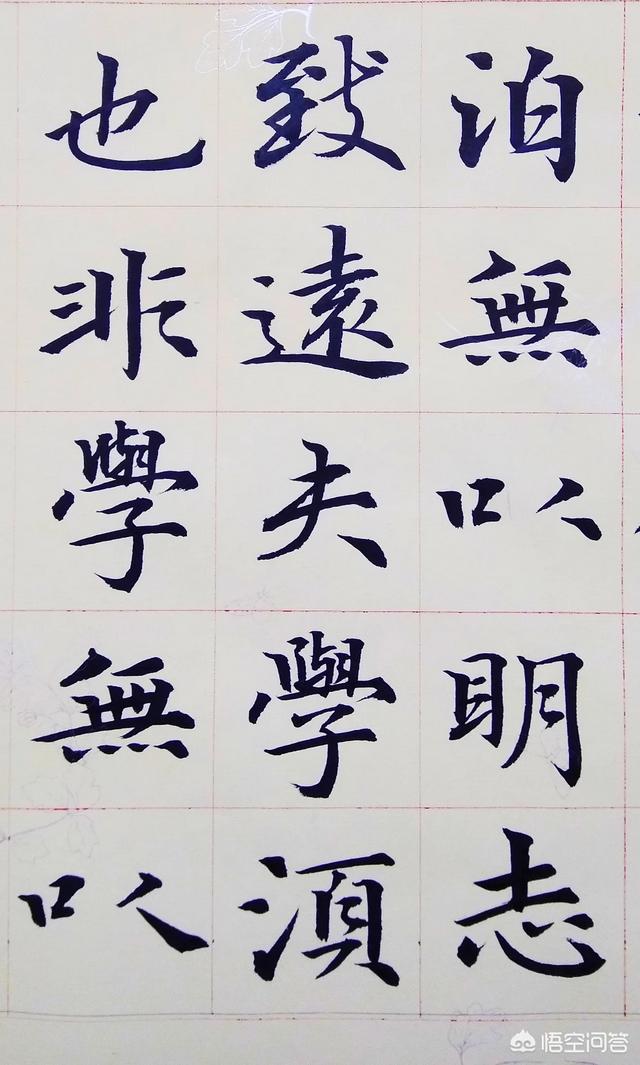 泊無以明志
致遠夫學須
也非學無以
悟空问答